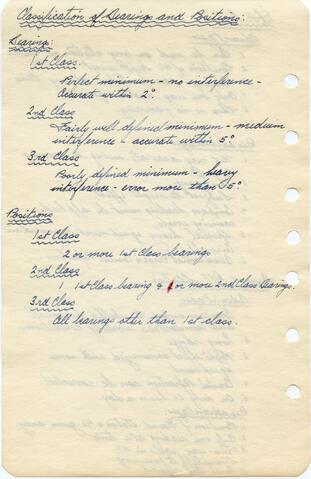 Classification of Bearings and Positions:
Bearing:
1st Class.
Perfect minimum - no interference -
Accurate within 2°.
2nd Class
Fairly well defined minimum - medium
interference - accurate within 5°.
3rd Class
Poorly defined minimum - heavy
interference - error more than 5°
Positions
1st Class
2 or more 1st Class bearings
2nd Class
1 1st Class bearing & 1 or more 2nd Class Bearings.
3rd Class
All bearings other than 1st class.